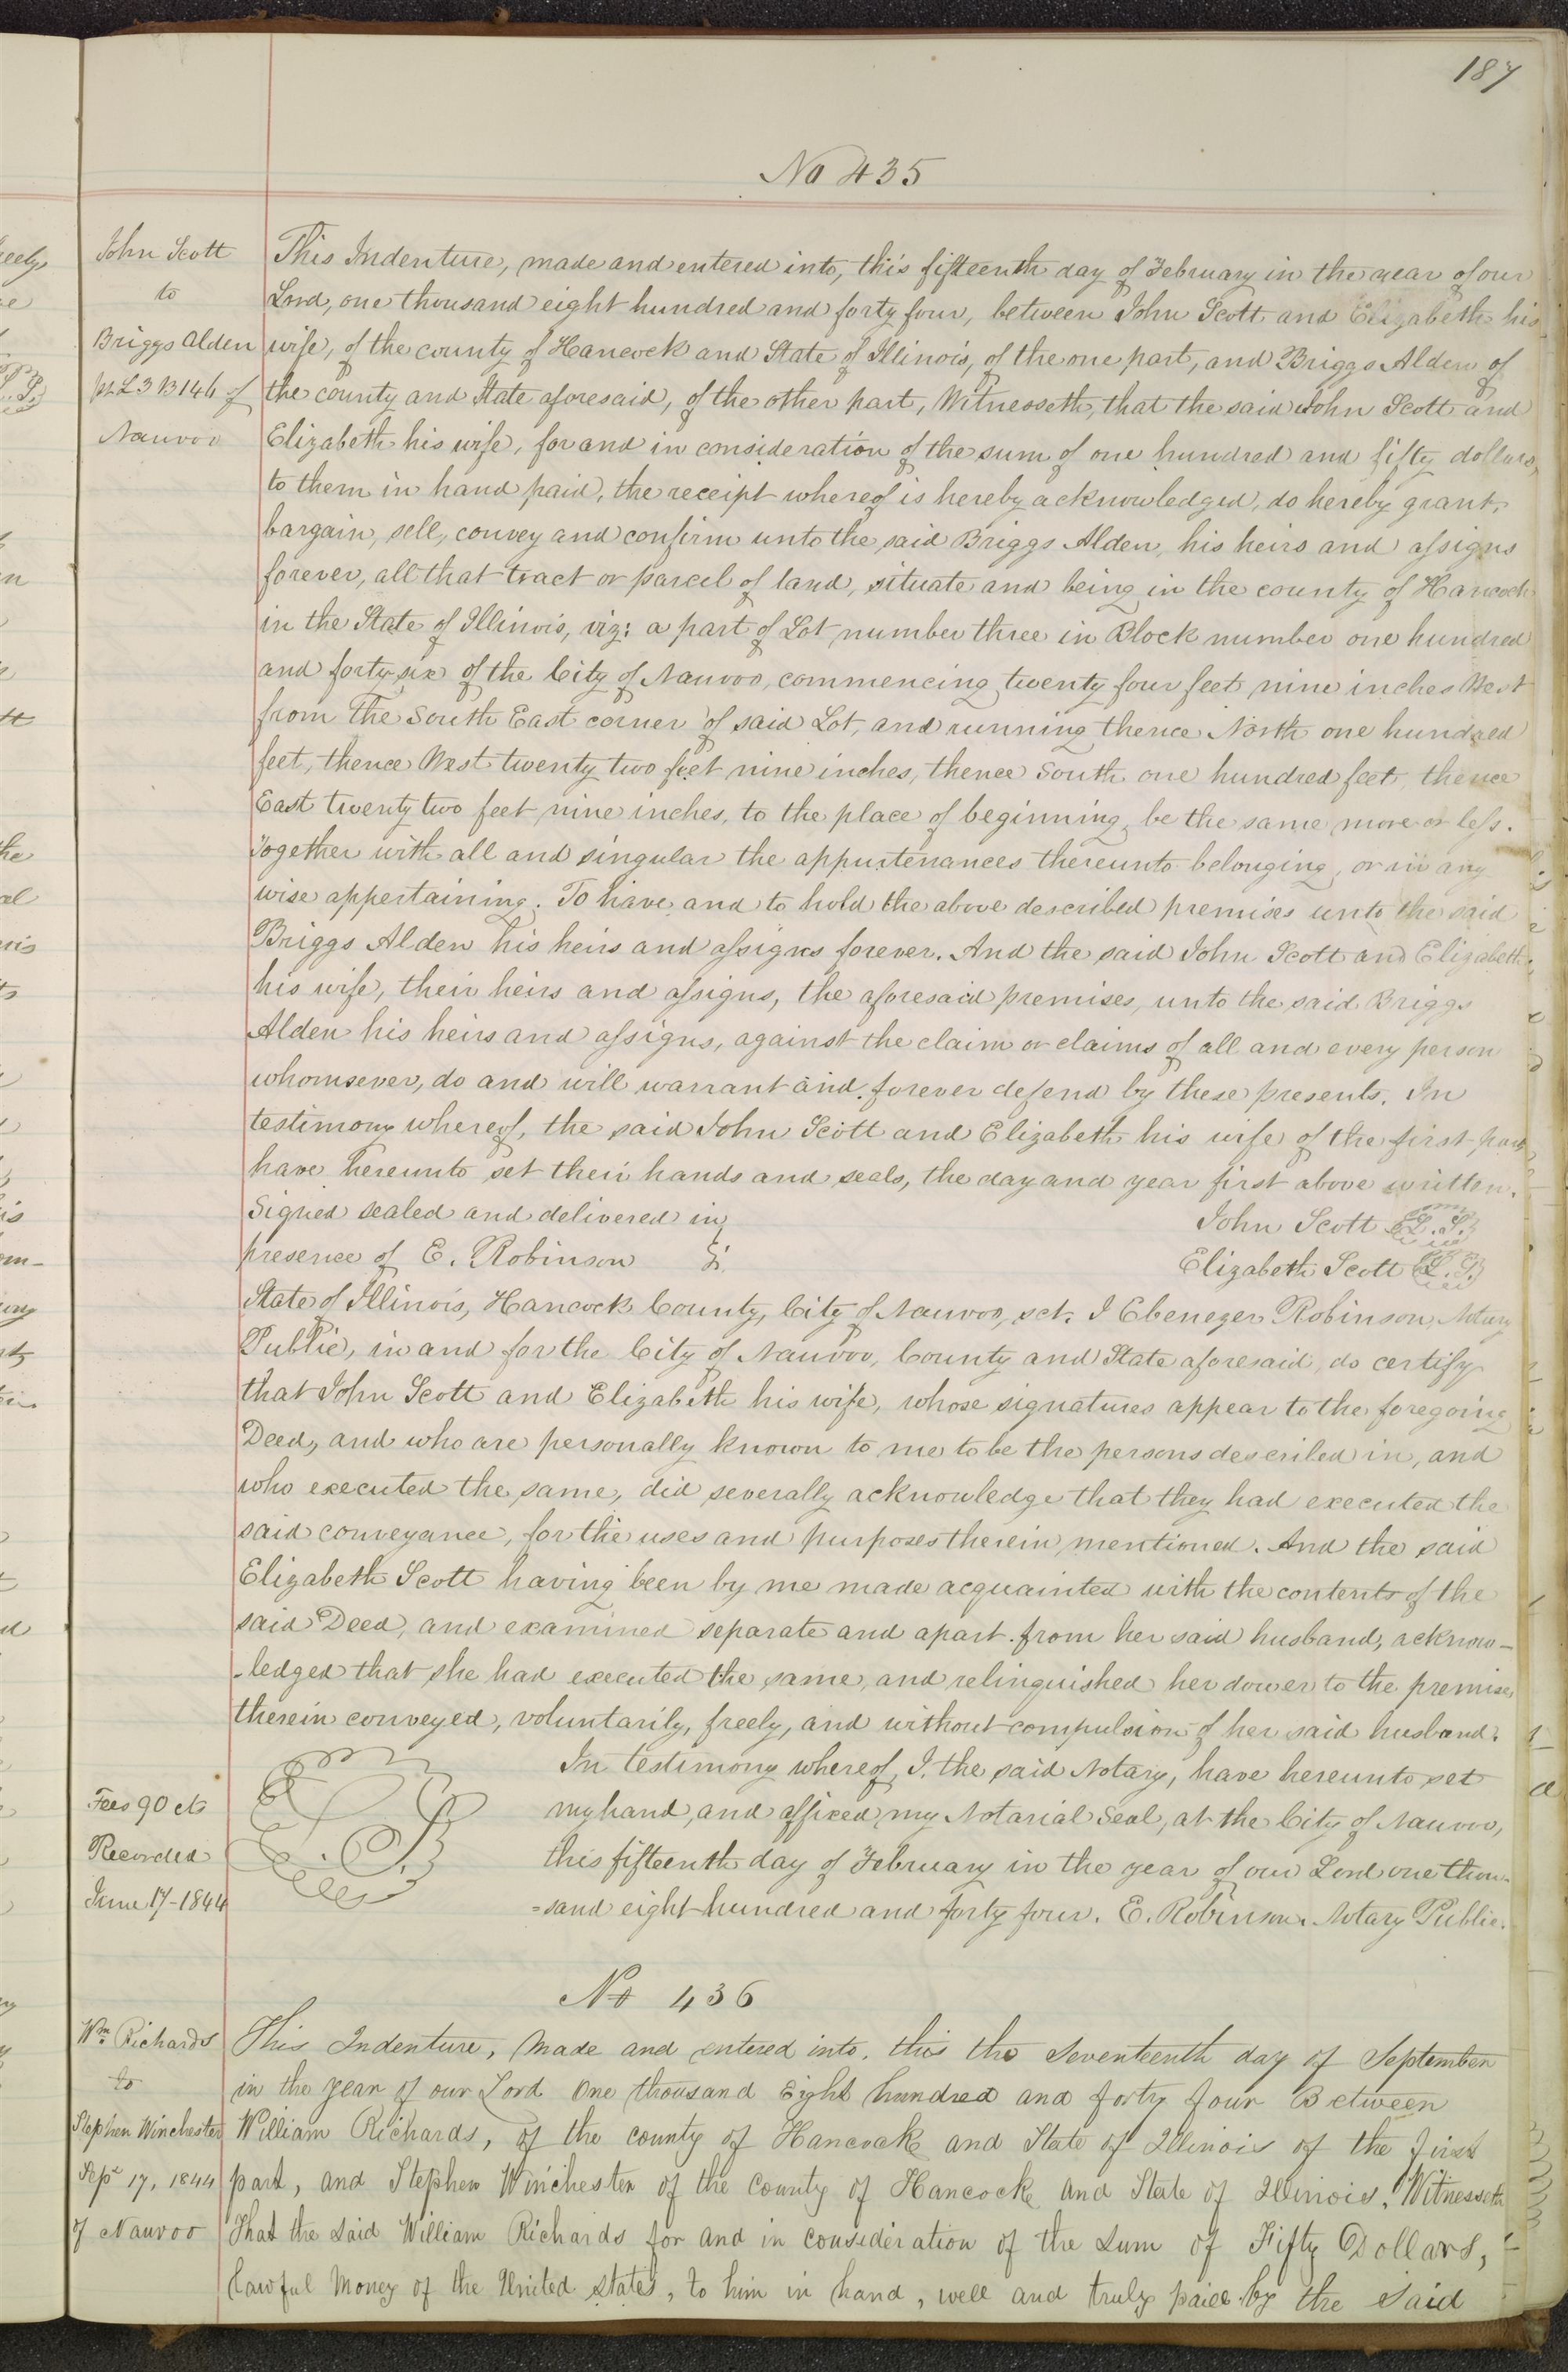 187
No 435
John Scott
to
Briggs Alden
pt L 3 B 146 of
Nauvoo
This Indenture, made and entered into, this fifteenth day of February in the year of our
Lord, one thousand eight hundred and forty four, between John Scott and Elizabeth his
wife, of the county of Hancock and State of Illinois, of the one part, and Briggs Alden of
the county and State aforesaid, of the other part, Witnesseth, that the said John Scott and
Elizabeth his wife, for and in consideration of the sum of one hundred and fifty dollars,
to them in hand paid, the receipt whereof is hereby acknowledged, do hereby grant,
bargain, sell, convey and confirm unto the said Briggs Alden, his heirs and assigns
forever, all that tract or parcel of land, situate and being in the county of Hancock
in the State of Illinois, viz: a part of Lot number three in Block number one hundred
and forty six of the City of Nauvoo, commencing twenty four feet nine inches West
from the South East corner of said Lot, and running thence North one hundred
feet, thence West twenty two feet nine inches, thence South one hundred feet, thence
East twenty two feet nine inches, to the place of beginning, be the same more or less.
Together with all and singular the appurtenances thereunto belonging, or in any
wise appertaining. To have and to hold the above described premises unto the said
Briggs Alden his heirs and assigns forever. And the said John Scott and Elizabeth
his wife, their heirs and assigns, the aforesaid premises, unto the said Briggs
Alden his heirs and assigns, against the claim or claims of all and every person
whomsever, do and will warrant and forever defend by these presents. In
testimony whereof, the said John Scott and Elizabeth his wife of the first part
have hereunto set their hands and seals, the day and year first above written.
Signed sealed and delivered in
presence of E. Robinson
John Scott L.S.
Elizabeth Scott L.S.
State of Illinois, Hancock County, City of Nauvoo, sct. I Ebenezer Robinson, Notary
Public, in and for the City of Nauvoo, County and State aforesaid, do certify
that John Scott and Elizabeth his wife, whose signatures appear to the foregoing
Deed, and who are personally known to me to be the persons described in, and
who executed the same, did severally acknowledge that they had executed the
said conveyance, for the uses and purposes therein mentioned. And the said
Elizabeth Scott having been by me made acquainted with the contents of the
said Deed, and examined separate and apart from her said husband, acknow-
-ledged that she had executed the same, and relinquished her dower to the premises
therein conveyed, voluntarily, freely, and without compulsion of her said husband.
In testimony whereof, I, the said Notary, have hereunto set
my hand, and affixed my Notarial Seal, at the City of Nauvoo,
this fifteenth day of February in the year of our Lord one thou-
=sand eight hundred and forty four. E. Robinson. Notary Public.
L.S.
Fees 90 cts
Recorded
June 17-1844
No 436
Wm. Richards
to
Stephen Winchester
Sept 17, 1844
of Nauvoo
This Indenture, Made and entered into, this the Seventeenth day of September
in the year of our Lord One thousand Eight hundred and forty four Between
William Richards, of the county of Hancock and State of Illinois of the first
part, and Stephen Winchester of the County of Hancock and State of Illinois, Witnesseth
That the Said William Richards for and in consideration of the Sum of Fifty Dollars,
lawful Money of the United States, to him in hand, well and truly paid by the Said